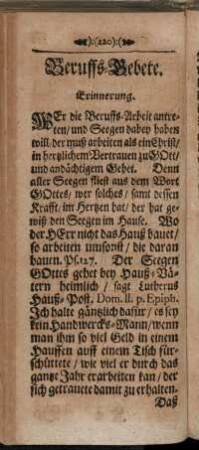 ):(220):(
Beruffs-Gebete.
Erinnerung.
WEr die Beruffs-Arbeit antre-
ten/ und Seegen dabey haben
will, der muß arbeiten als ein Christ/
in hertzlichem Vertrauen zu GOtt/
und andächtigem Gebet. Denn
aller Seegen fliest aus dem Wort
GOttes/ wer solches/ samt dessen
Krafft, im Hertzen hat/ der hat ge-
wiß den Seegen im Hause. Wo
der HErr nicht das Hauß bauet/
so arbeiten umsonst/ die daran
bauen. Ps. 127. Der Seegen
GOttes gehet bey Hauß-Vä-
tern heimlich/ sagt Lutherus
Hauß-Post. Dom. II. p. Epiph.
Ich halte gäntzlich dafür/ es sey
kein Handwercks-Mann/ wenn
man ihm so viel Geld in einem
Hauffen auff einem Tisch für-
schüttete/ wie viel er durch das
gantze Jahr erarbeiten kan/ der
sich getrauete damit zu erhalten.
Daß